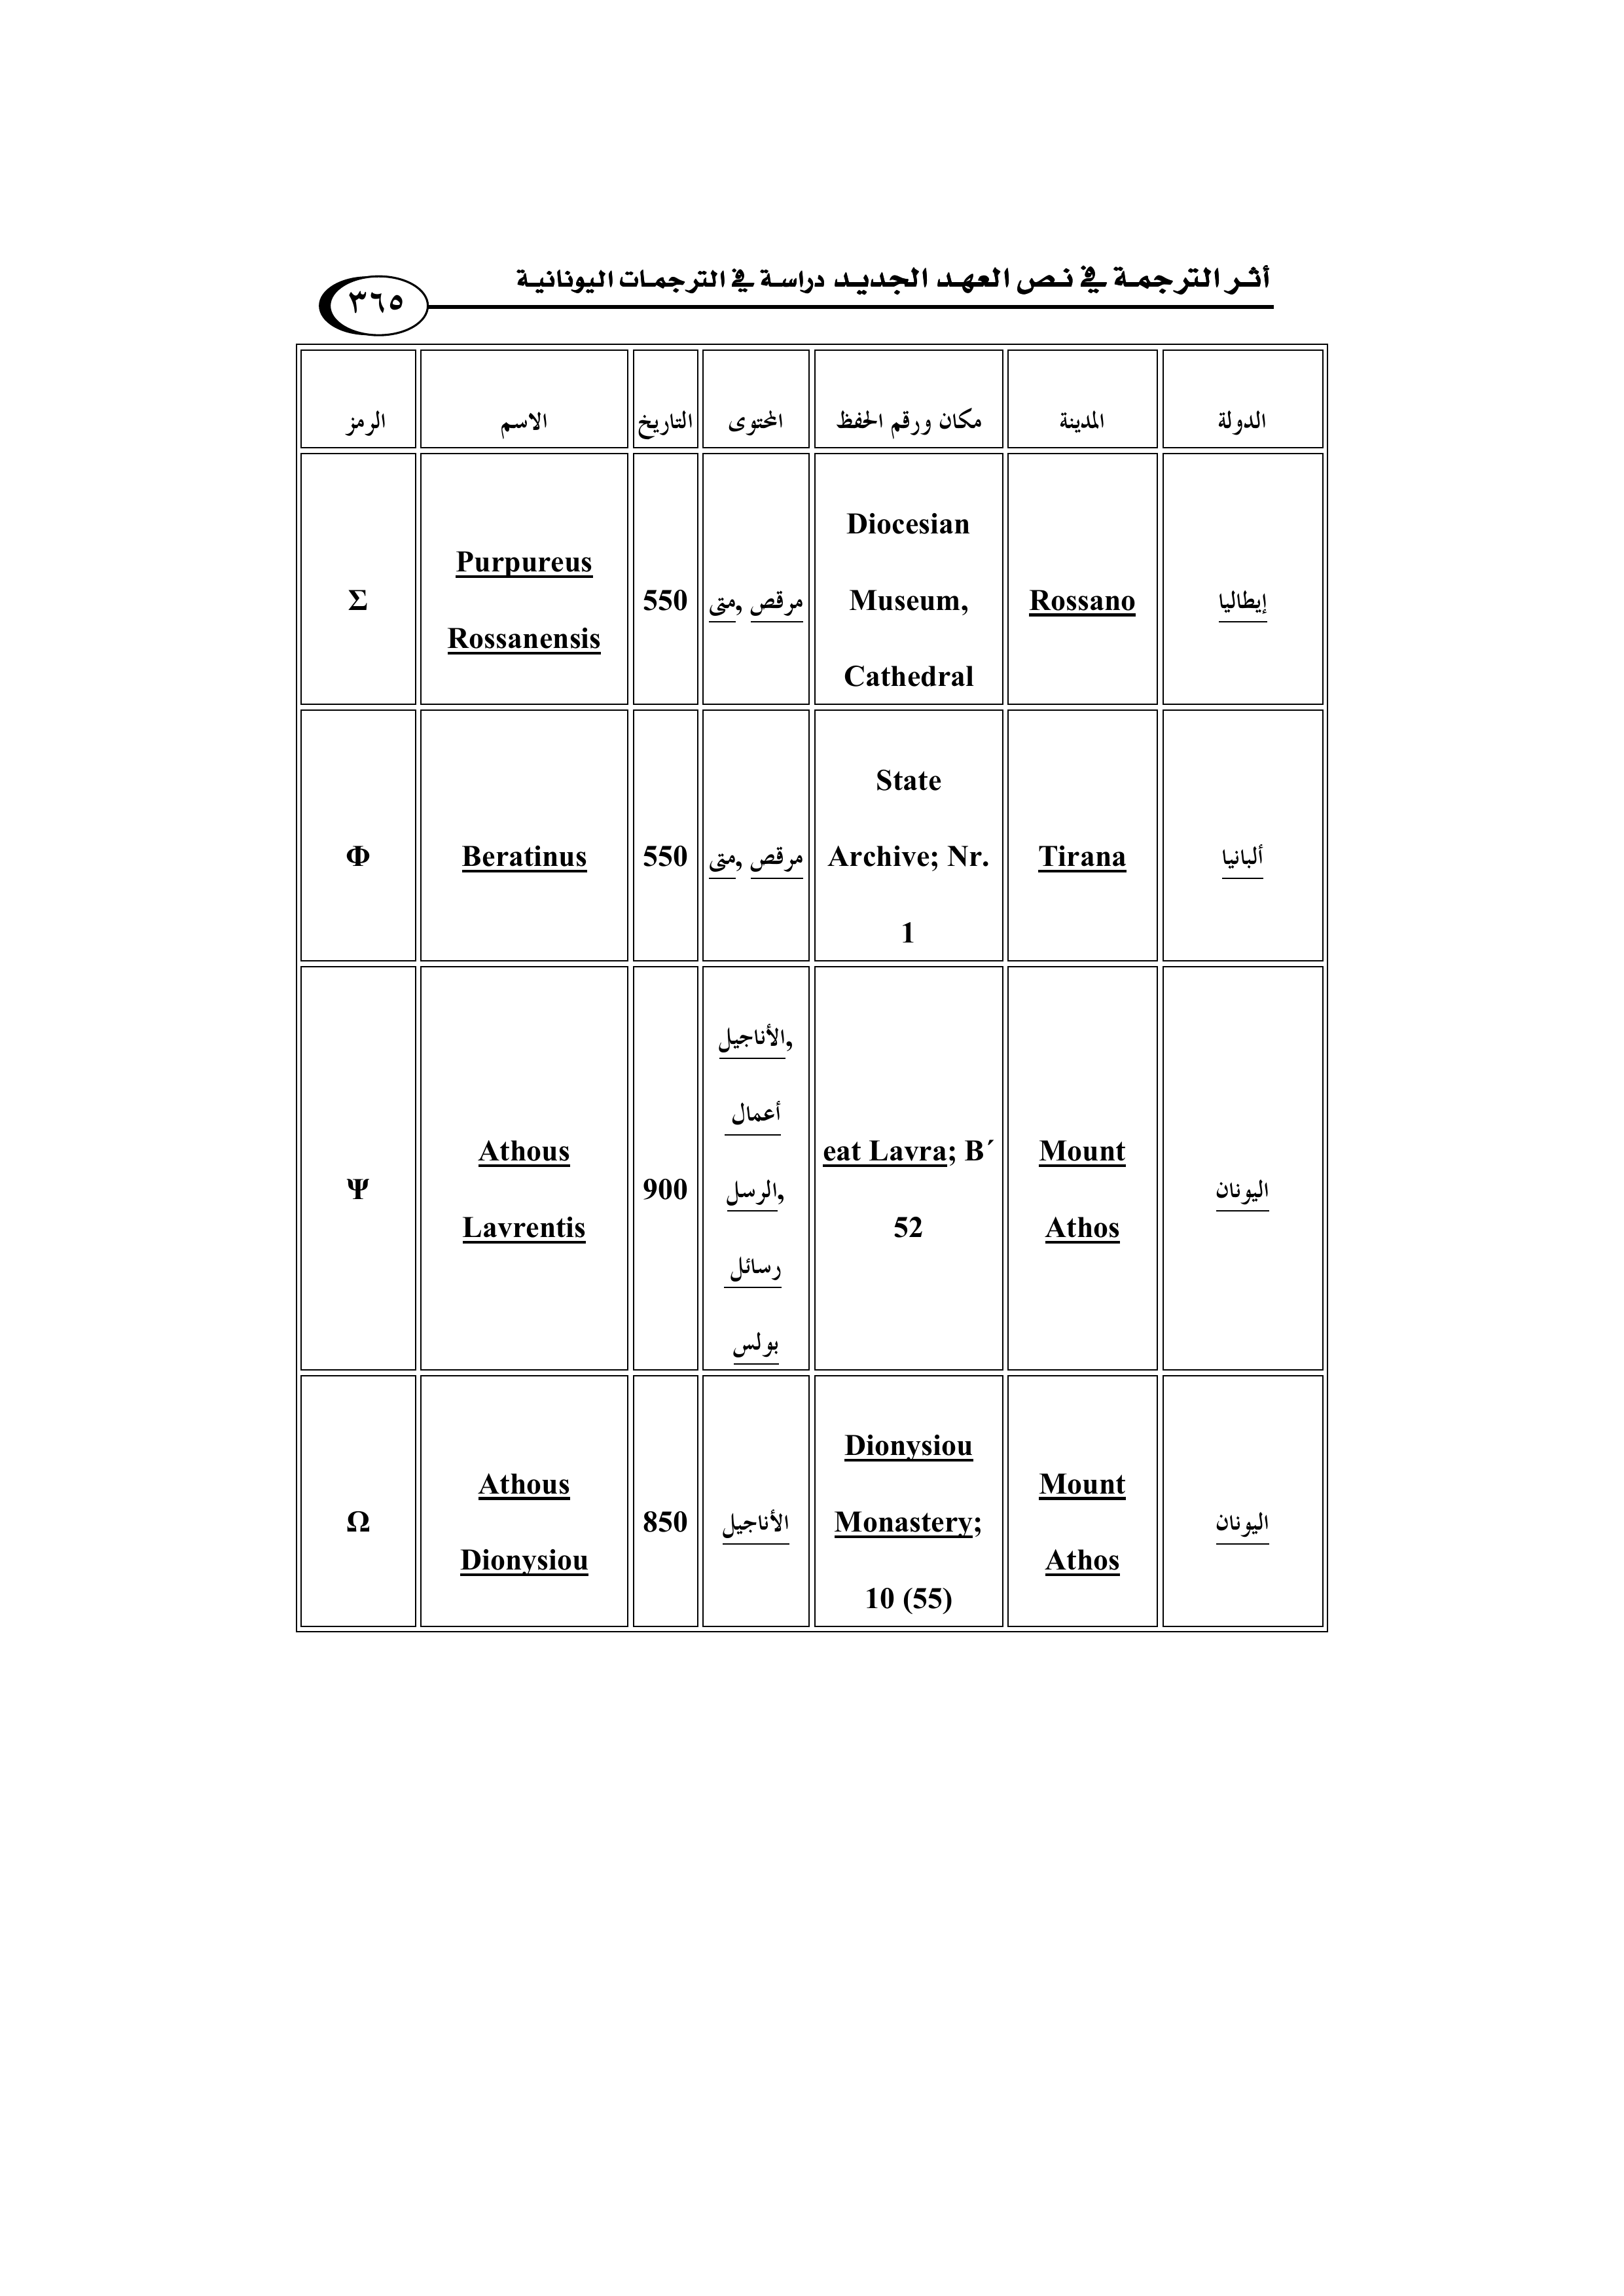 أثر الترجمة في نص العهد الجديد دراسة في الترجمات اليونانية
٣٦٥
الرمز
الاسم
التاريخ
المحتوى
مكان ورقم الحفظ
المدينة
الدولة
Σ
Purpureus
Rossanensis
550
متى, مرقص
Diocesian
Museum,
Cathedral
Rossano
إيطاليا
Φ
Beratinus
550
متى, مرقص
State
Archive; Nr.
1
Tirana
ألبانيا
Ψ
Athous
Lavrentis
900
الأناجيل,
أعمال
الرسل,
رسائل
بولس
eat Lavra; B´
52
Mount
Athos
اليونان
Ω
Athous
Dionysiou
850
الأناجيل
Dionysiou
Monastery;
10 (55)
Mount
Athos
اليونان